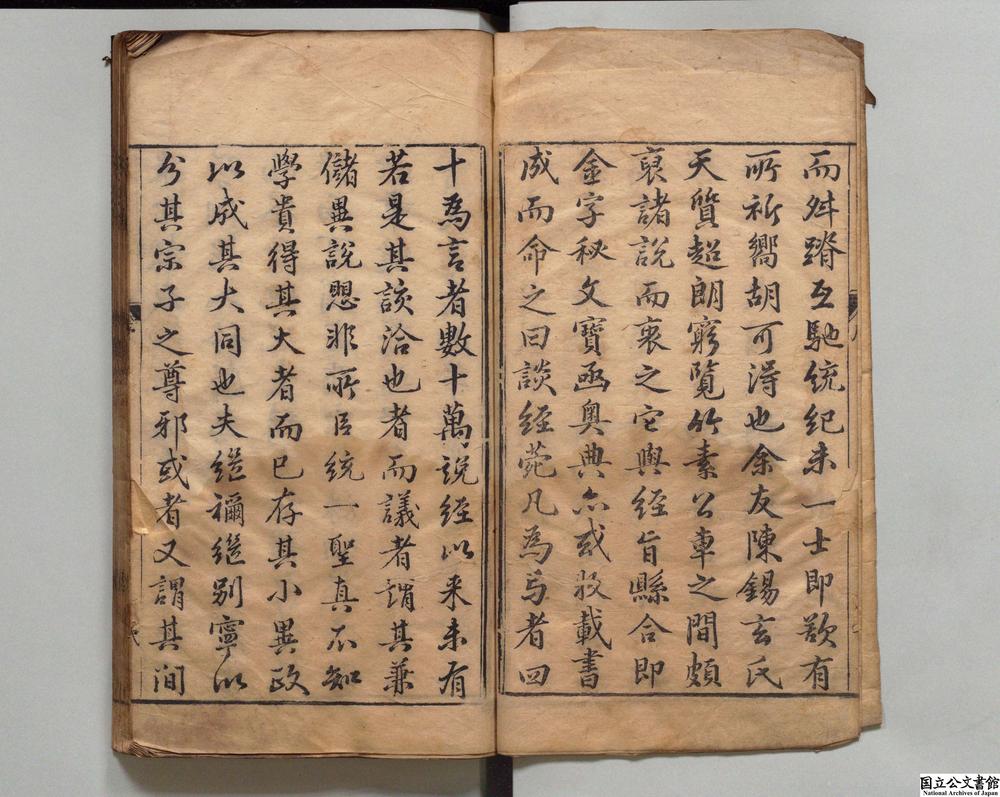 而舛踳互馳統紀未一士即欲有
所祈嚮胡可得也余友陳錫玄氏
天質超朗窮覽竹素公車之間頗
裒諸說而衷之它與經旨縣合即
金字秘文寶函奧典亦或收載書
成而命之曰談經菀凡為卷者四
十為言者數十萬說經以來未有
若是其該洽也者而議者謂其兼
儲異說愳非所㠯統一聖真不知
學貴得其大者而已存其小異政
以成其大同也夫繼禰繼別寧以
分其宗子之尊邪或者又謂其間
国立公文書館
National Archives of Japan